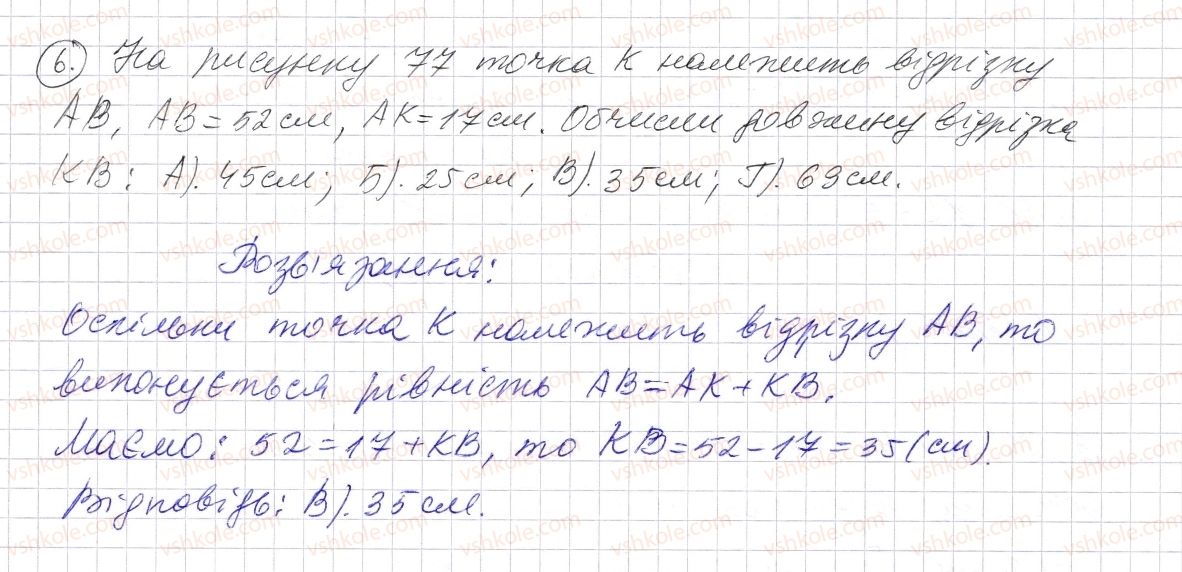 6. На рисунку 77 точка K належить відрізку
AB, AB = 52 см, AK = 17 см. Обчисли довжину відрізка
KB: А). 45 см; Б). 25 см; В). 35 см; Г). 69 см.
Розв'язання:
Оскільки точка K належить відрізку AB, то
виконується рівність AB = AK + KB.
Маємо: 52 = 17 + KB, то KB = 52 - 17 = 35 (см).
Відповідь: В). 35 см.